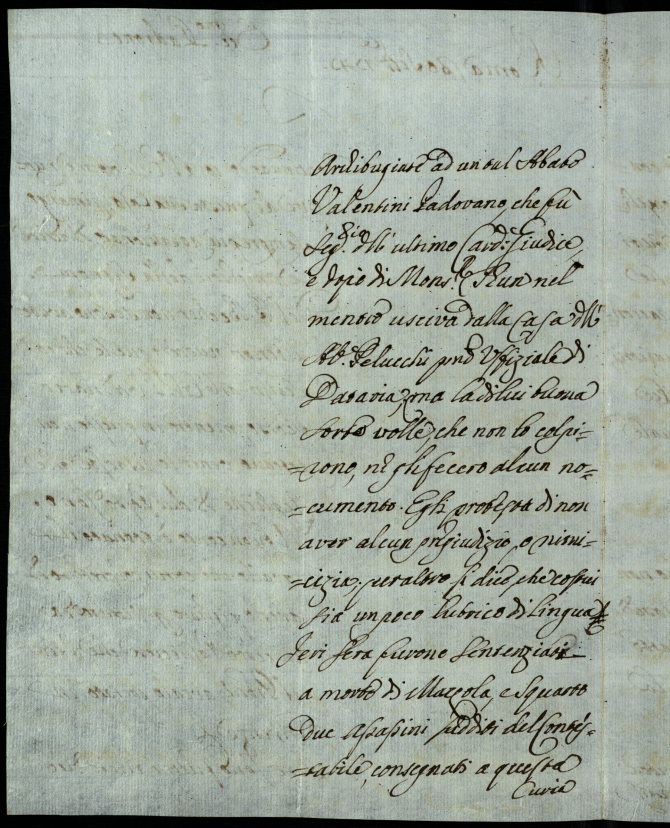 Archibugiate ad un tal Abate
Valentini Padovano, che fù
Seg.rio dell' ultimo Card. Giudice,
e dopo di Mons.r Thun nel
mentre usciva dalla Casa dell'
Ab.e Pelucchi Uffiziale di
Dataria, ma la di lui buona
sorte volle, che non lo colpi-
=rono, nè gli fecero alcun no-
=cumento. Egli protesta di non
aver alcun pregiudizio, o nimi-
=cizia; per altro si dice, che costui
sia un poco lubrico di Lingua
Jeri sera furono sentenziati
a morte di Mazzola, e squarto
due assassini sudditi del Contes-
=tabile, consegnati a questa
Curia